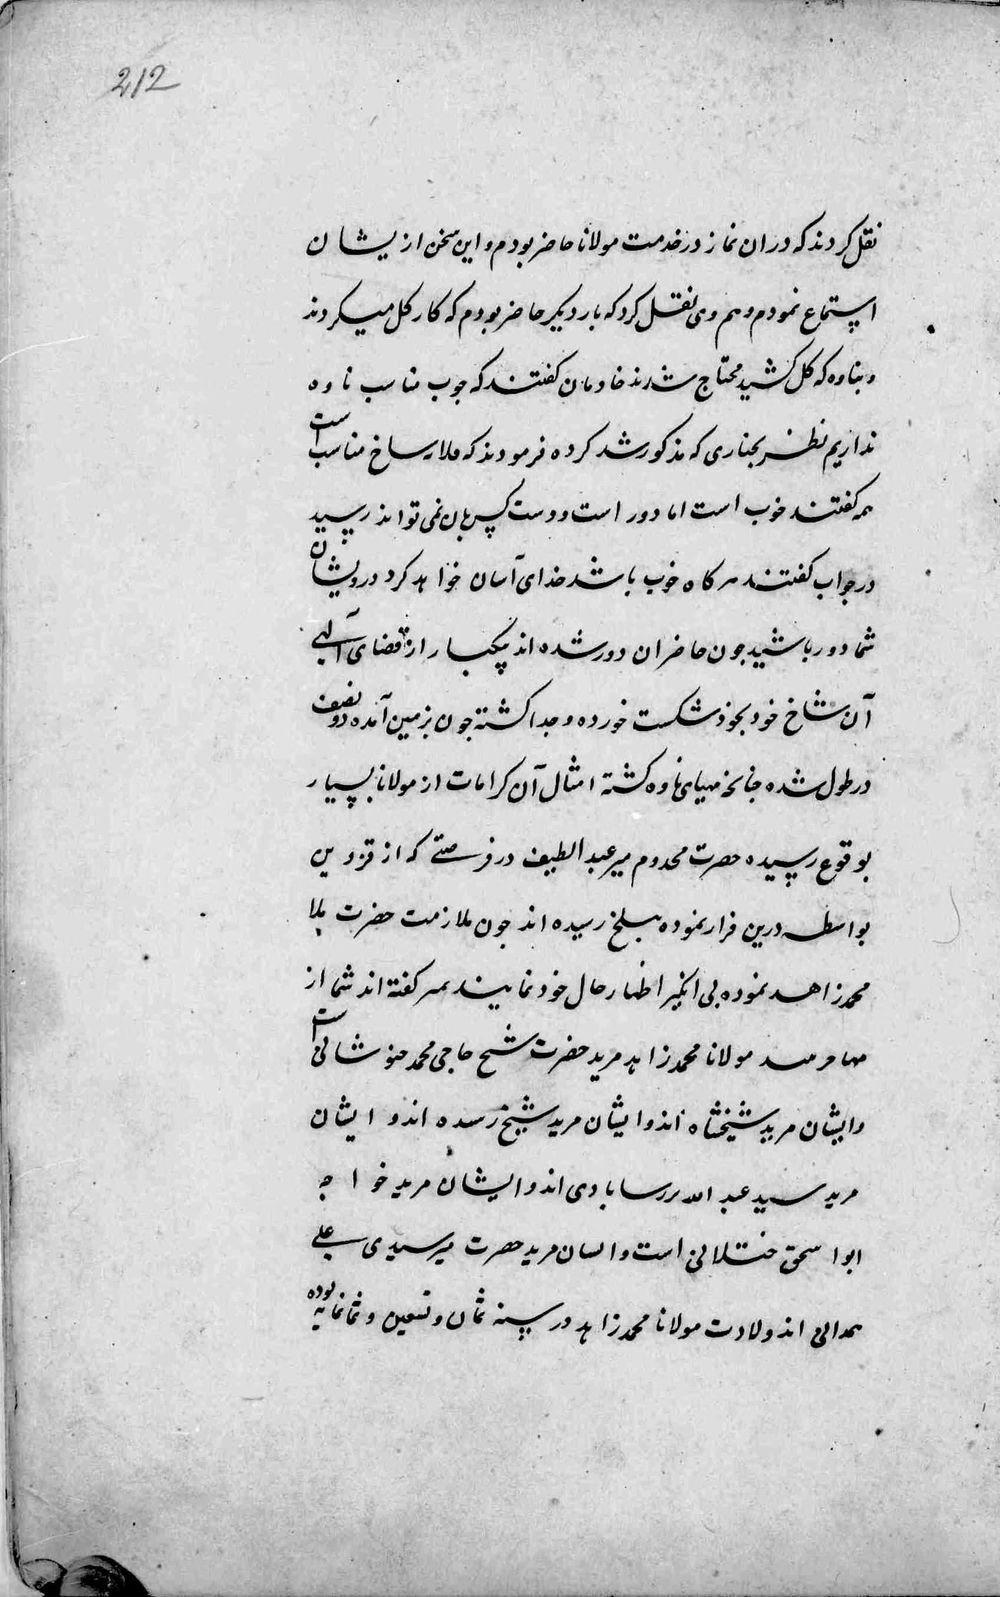 212
نقل کردند که دران نماز در خدمت مولانا حاضر بودم و این سخن از یشان
استماع نمودم و هم وی نقل کرد که بار دیکر حاضر بودم که کار کل میکردند
و بناوه که کل کشید محتاج شدند خادمان کفتند که جوب مناسب ناوه
نداریم نظر بجناری که مذکور شد کرده فرمودند که فلان شاخ مناسب است
همه کفتند خوب است اما دور است و دست کس بان نمی تواند رسید
در جواب کفتند هر کاه خوب باشد خدای آسان خواهد کرد درویشان
شما دور باشید جون حاضران دور شده اند یکبار از قضای آلهی
آن شاخ خود بخود شکست خورده و جدا کشته جون بزمین آمده دو نصف
در طول شده جنانجه مهیای ناوه کشته امثال آن کرامات از مولانا بسیار
بوقوع رسیده حضرت مخدوم میر عبد الطیف در فرصتی که از قزوین
بواسطه درین فرار نموده ببلخ رسیده اند جون ملازمت حضرت ملا
محمد زاهد نموده بی انکه اظهار حال خود نمایند کفته اند شما از
مولانا محمد زاهد مرید حضرت شیخ حاجی محمد خبوشانی است
و ایشان مرید شیخ شاه اند و ایشان مرید شیخ رسده اند و ایشان
مرید سید عبد الله بررسابادی اند و ایشان مرید خواجه
ابو اسحق ختلانی است و ایسان مرید حضرت میر سیدی علی
همدانی اند ولادت مولانا محمد زاهد در سنه ثمان و تسعین و ثمانمایه بوده